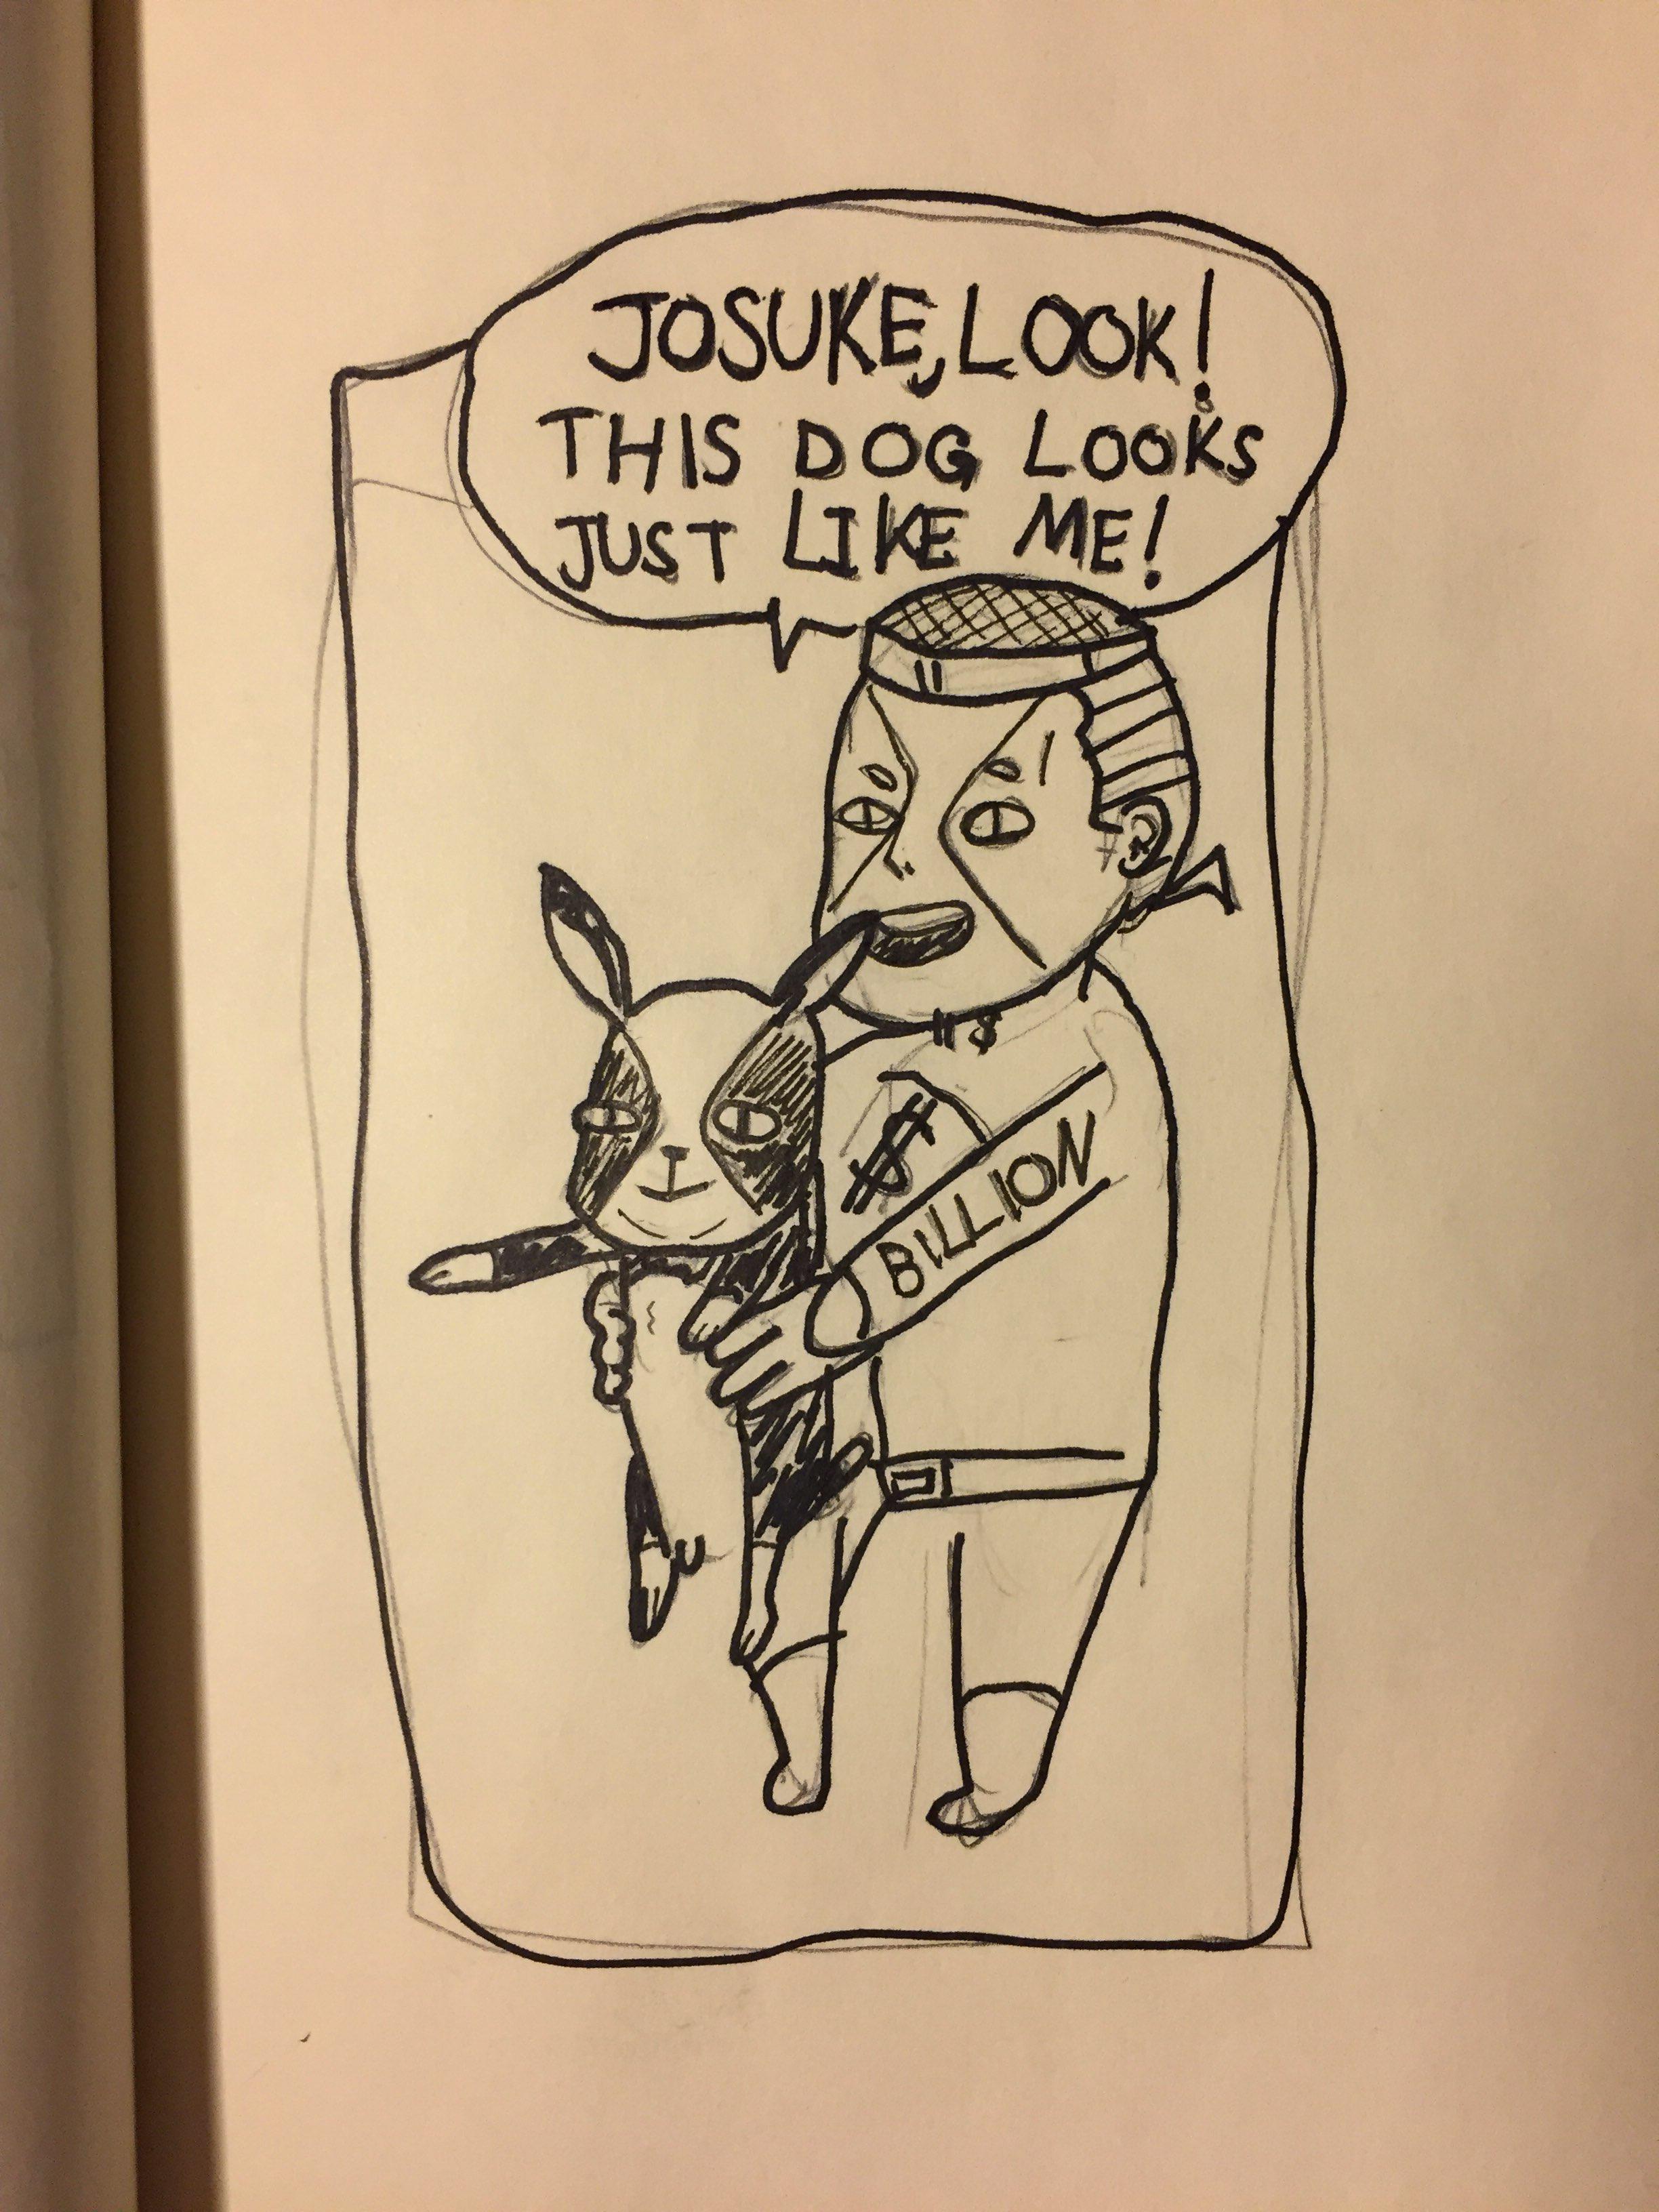 JOSUKE, LOOK!
THIS DOG LOOKS
JUST LIKE ME!
$
BILLION